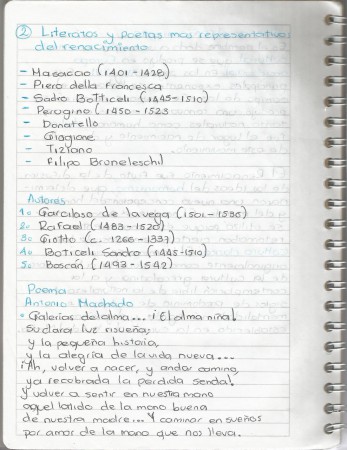 ② Literatos y poetas mas representativos
del renacimiento
- Masaccio (1401-1428)
- Piero della Francesca
- Sadro Botticeli (1445-1510)
- Perugino (1450-1523
- Donatello
- Giorgione
- Tiziano
- Filipo Bruneleschi
Autores
1o Garcilaso de la vega (1501-1536)
2o Rafael (1483-1520)
3o Giotto (c. 1266-1337)
4o Boticeli Sandro (1445-1510)
5o Boscán (1493-1542)
Poema
Antonio Machado
• Galerias del alma... ¡El alma niña!
Su clara luz risueña;
y la pequeña historia,
y la alegria de la vida nueva...
¡Ah, volver a nacer, y andar camino,
ya recobrada la perdida senda!
Y volver a sentir en nuestra mano
aquel latido de la mano buena
de nuestra madre... Y caminar en sueños
por amor de la mano que nos lleva.